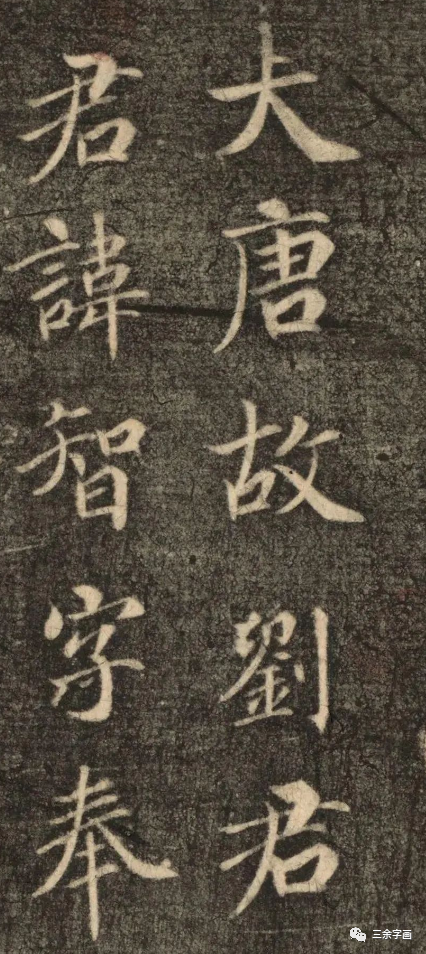 大唐故劉君
君諱智字奉
三余字画